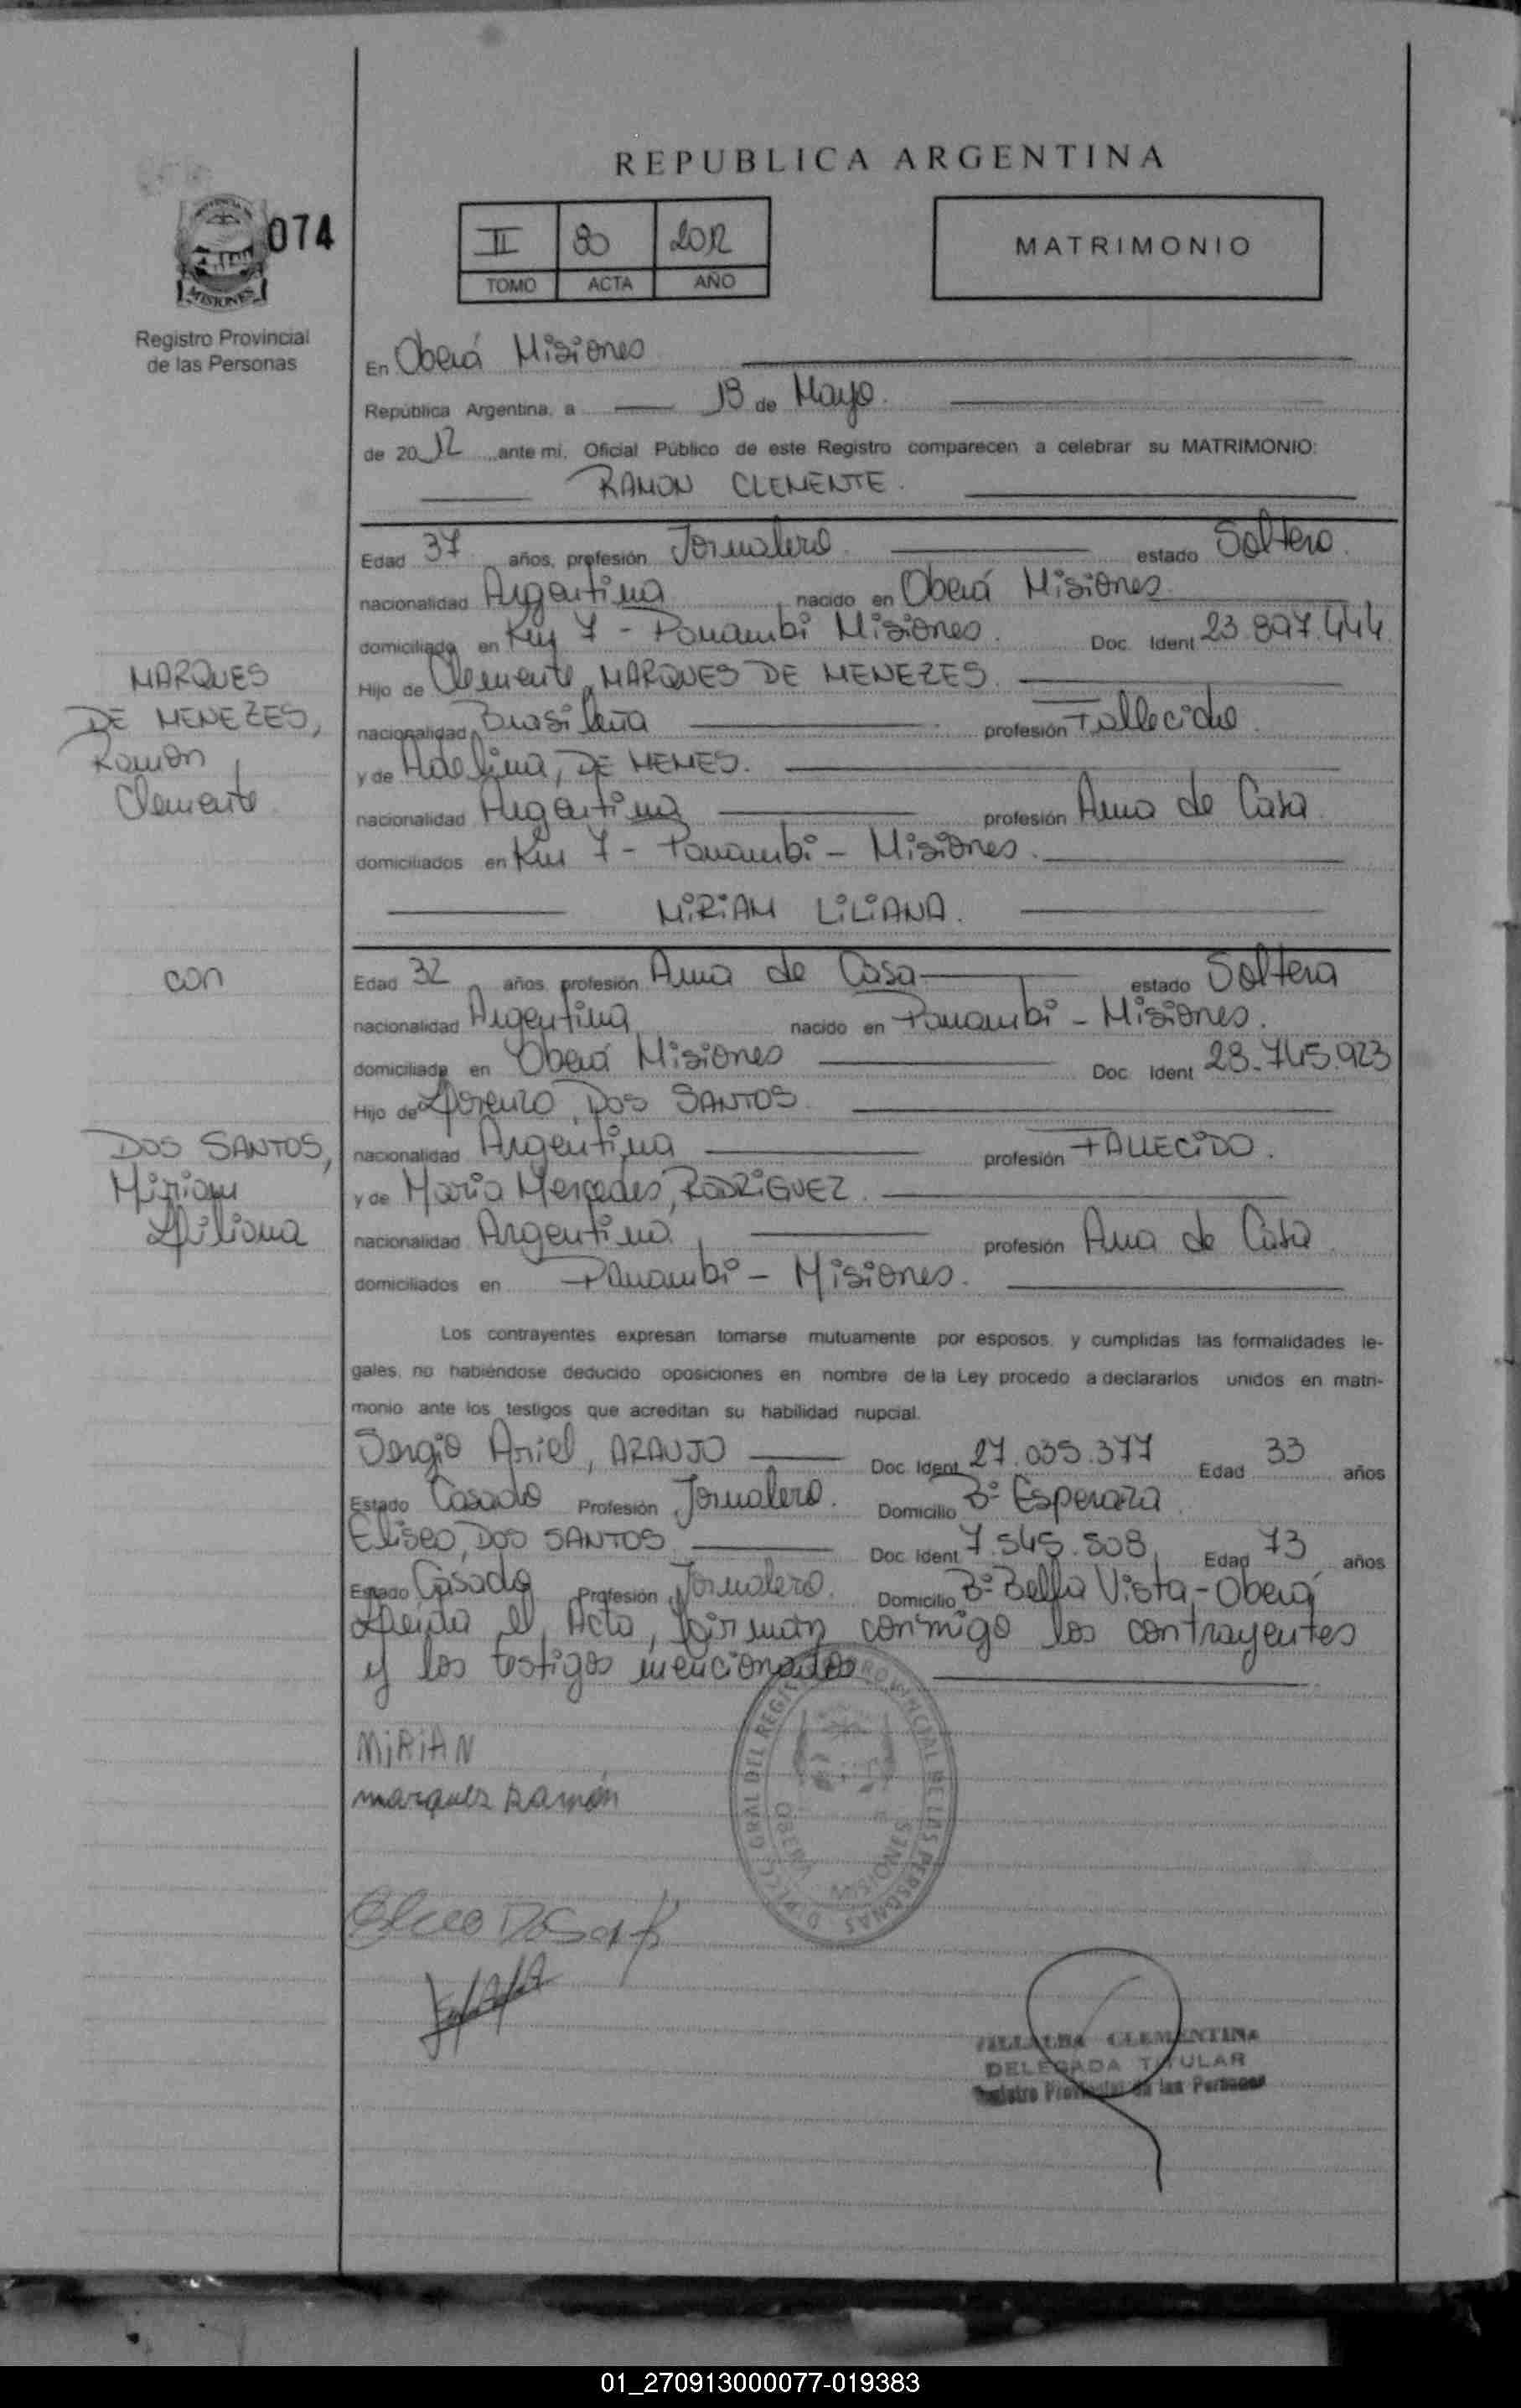 REPUBLICA ARGENTINA
074
II 80 2012
TOMO ACTA AÑO
MATRIMONIO
MISIONES
Registro Provincial
de las Personas
En Oberá Misiones
República Argentina, a 18 de Mayo.
de 2012 ante mi, Oficial Público de este Registro comparecen a celebrar su MATRIMONIO:
RAMON CLEMENTE.
Edad 37 años, profesión Jornalero estado Soltero.
nacionalidad Argentina nacido en Oberá Misiones
domiciliado en Km 7 - Panambi Misiones. Doc. Ident 23.897.444
Hijo de Clemente, MARQUES DE MENEZES.
nacionalidad Brasileña profesión Fallecido.
y de Adelina, DE MEMES.
nacionalidad Argentina profesión Ama de Casa
domiciliados en Km 7 - Panambi - Misiones.
MARQUES
DE MENEZES,
Ramon
Clemente
MiRiAM LiLiANA.
con
Edad 32 años, profesión Ama de Casa estado Soltera
nacionalidad Argentina nacido en Panambi - Misiones.
domiciliada en Oberá Misiones Doc. Ident 28.745.923
Hijo de Lorenzo, DOS SANTOS
nacionalidad Argentina profesión FALLECiDO.
y de Maria Mercedes, RODRiGUEZ.
nacionalidad Argentina profesión Ama de Casa
domiciliados en Panambi - Misiones.
DOS SANTOS,
Miriam
Liliana
Los contrayentes expresan tomarse mutuamente por esposos, y cumplidas las formalidades le-
gales, no habiéndose deducido oposiciones en nombre de la Ley procedo a declararlos unidos en matri-
monio ante los testigos que acreditan su habilidad nupcial.
Sergio Ariel, ARAUJO Doc. Ident 27.035.377 Edad 33 años
Estado Casado Profesión Jornalero. Domicilio Bº Esperaza
Eliseo, DOS SANTOS Doc. Ident 7.545.808 Edad 73 años
Estado Casado Profesión Jornalero. Domicilio Bº Bella Vista - Oberá
Leida el Acta, firman conmigo los contrayentes
y los testigos mencionados
MiRiAN
marques Ramón
DIRECC. GRAL DEL REGISTRO PROVINCIAL DE LAS PERSONAS
OBERA MISIONES
VILLALBA CLEMENTINA
DELEGADA TITULAR
Registro Provincial de las Personas
01_270913000077-019383